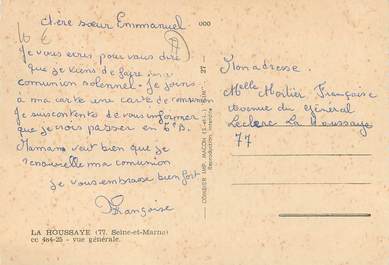 chère sœur Emmanuel
Je vous écris pour vous dire
que je viens de faire ma
comunion solennel. Je joins
à ma carte une carte de comunion
Je suis contente de vous informer
que je vais passer en 6e B.
Maman veut bien que je
renouvelle ma comunion
je vous embrasse bien fort
Françoise
LA HOUSSAYE (77. Seine-et-Marne)
cc 484-25 - vue générale.
COMBIER IMP. MACON
27
Mon adresse.
Melle Mortier Françoise
avenue du général
Leclerc La Houssaye
77